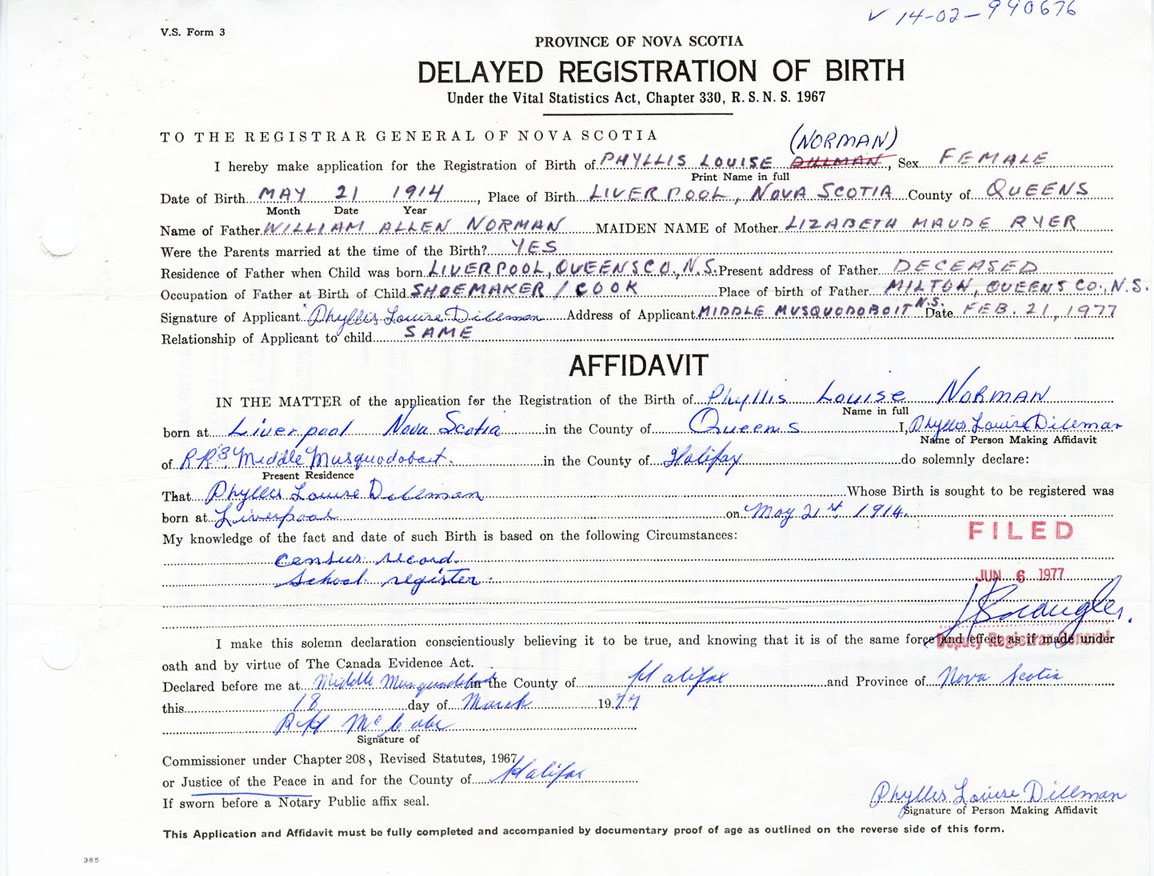 V 14-02-990676
V.S. Form 3
PROVINCE OF NOVA SCOTIA
DELAYED REGISTRATION OF BIRTH
Under the Vital Statistics Act, Chapter 330, R. S. N. S. 1967
TO THE REGISTRAR GENERAL OF NOVA SCOTIA
(NORMAN)
I hereby make application for the Registration of Birth of PHYLLIS LOUISE DILLMAN, Sex FEMALE
Print Name in full
Date of Birth MAY 21 1914, Place of Birth LIVERPOOL, NOVA SCOTIA County of QUEENS
Month Date Year
Name of Father WILLIAM ALLEN NORMAN MAIDEN NAME of Mother LIZABETH MAUDE RYER
Were the Parents married at the time of the Birth? YES
Residence of Father when Child was born LIVERPOOL, QUEENS CO., N.S. Present address of Father DECEASED
Occupation of Father at Birth of Child SHOEMAKER / COOK Place of birth of Father MILTON, QUEENS CO., N.S.
Signature of Applicant Phyllis Louise Dillman Address of Applicant MIDDLE MUSQUODOBOIT N.S. Date FEB. 21, 1977
Relationship of Applicant to child SAME
AFFIDAVIT
IN THE MATTER of the application for the Registration of the Birth of Phyllis Louise NORMAN
Name in full
born at Liverpool Nova Scotia in the County of Queens I, Phyllis Louise Dillman
Name of Person Making Affidavit
of R.R.#3 Middle Musquodoboit. in the County of Halifax do solemnly declare:
Present Residence
That Phyllis Louise Dillman Whose Birth is sought to be registered was
born at Liverpool on May 21st 1914.
My knowledge of the fact and date of such Birth is based on the following Circumstances:
FILED
census record.
school register.
JUN 6 1977
I make this solemn declaration conscientiously believing it to be true, and knowing that it is of the same force and effect as if made under
Deputy Registrar General
oath and by virtue of The Canada Evidence Act.
Declared before me at Middle Musquodoboit in the County of Halifax and Province of Nova Scotia
this 18 day of March 1977
McCabe
Signature of
Commissioner under Chapter 208, Revised Statutes, 1967
or Justice of the Peace in and for the County of Halifax
If sworn before a Notary Public affix seal.
Phyllis Louise Dillman
Signature of Person Making Affidavit
This Application and Affidavit must be fully completed and accompanied by documentary proof of age as outlined on the reverse side of this form.
385